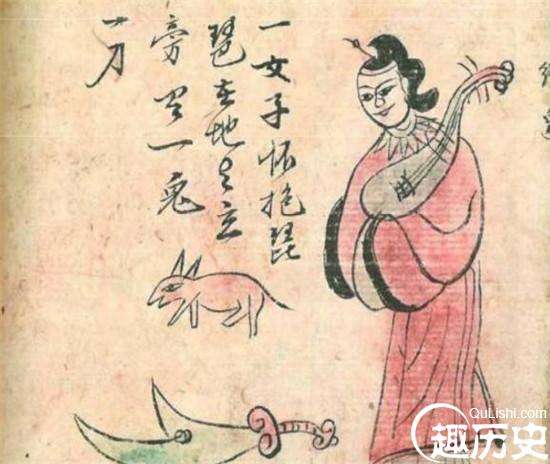 一女子怀抱琵
琶在地上立
旁一兔
一刀
QuLishi.com
趣历史